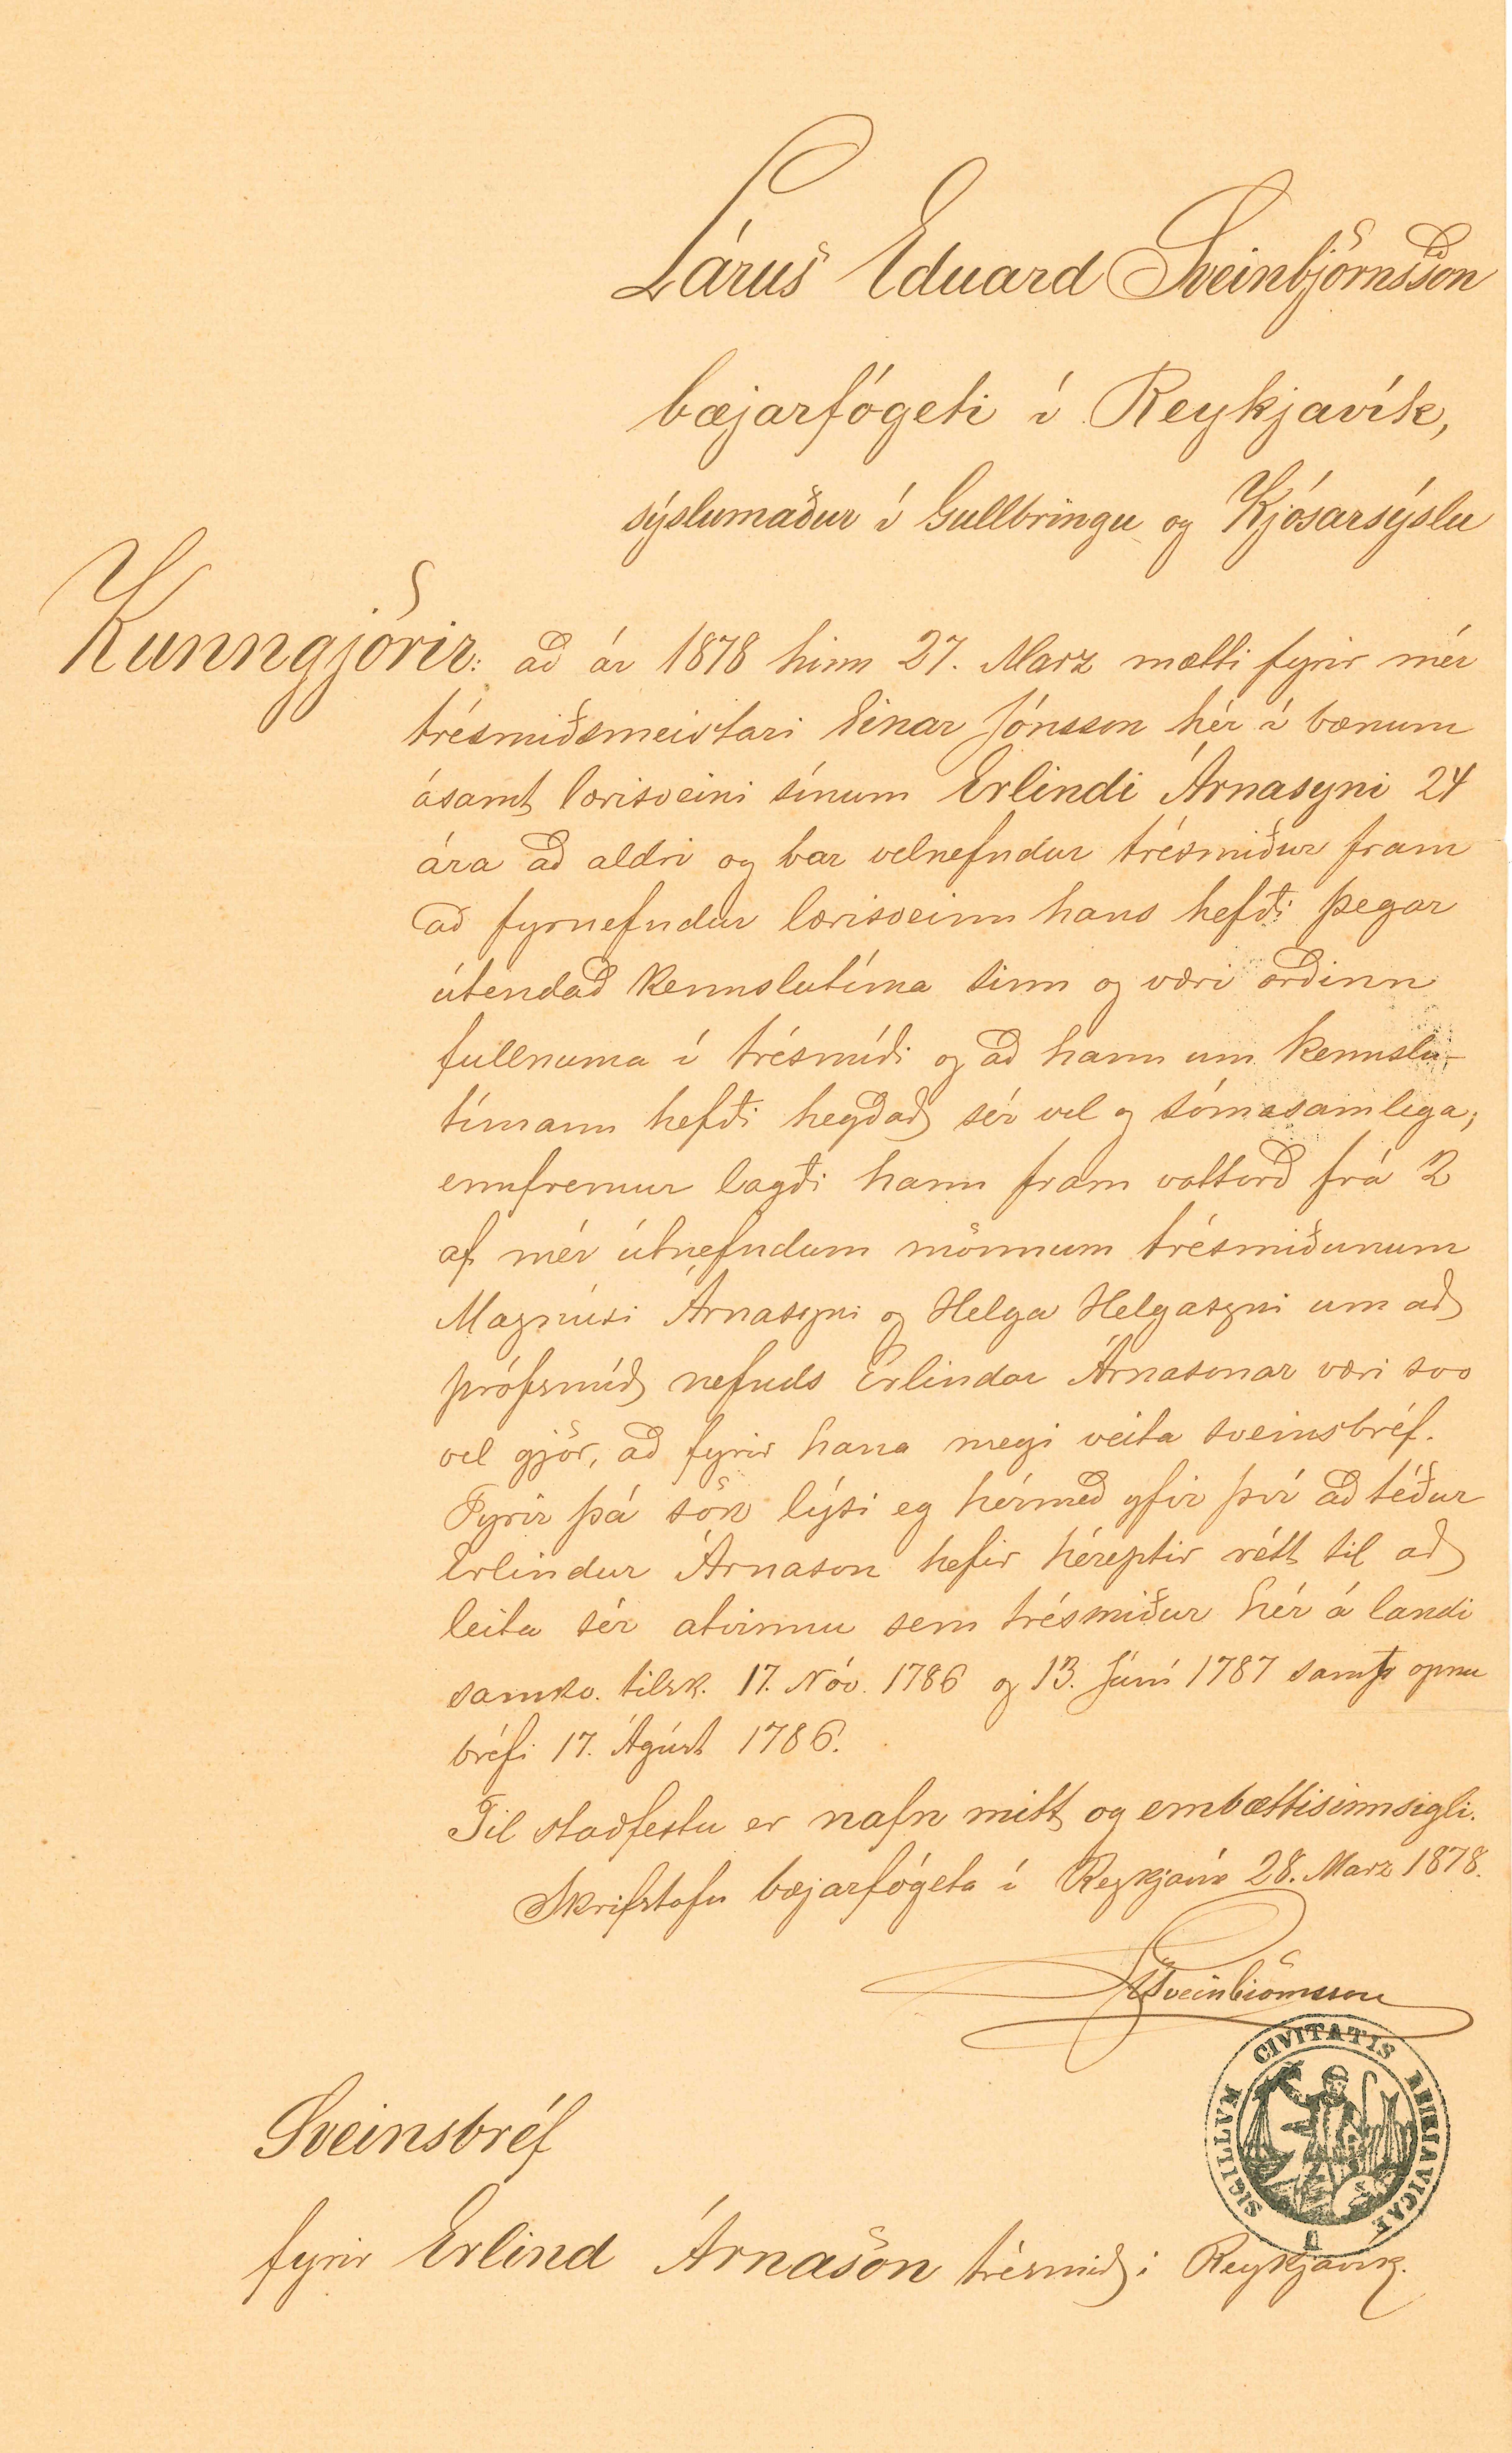 Lárus Eduard Sveinbjörnsson
bæjarfógeti í Reykjavík,
sýslumaður í Gullbringu og Kjósarsýslu
Kunngjörir: að ár 1878 hinn 27. Marz mætti fyrir mér
trésmiðsmeistari Einar Jónsson hér í bænum
ásamt lærisveini sínum Erlindi Árnasyni 24
ára að aldri og bar velnefndur trésmiður fram
að fyrnefndur lærisveinn hans hefði þegar
útendað kennslutíma sinn og væri orðinn
fullnuma í trésmíði og að hann um kennslu-
tímann hefði hegðað sér vel og sómasamlega;
ennfremur lagði hann fram vottorð frá 2
af mér útnefndum mönnum trésmiðunum
Magnúsi Árnasyni og Helga Helgasyni um að
prófsmíð nefnds Erlindar Árnasonar væri svo
vel gjör, að fyrir hana megi veita sveinsbréf.
Fyrir þá sök lýsi eg hérmeð yfir því að téður
Erlindur Árnason hefir héreptir rétt til að
leita sér atvinnu sem trésmiður hér á landi
samkv. tilsk. 17. Nóv. 1786 og 13. Júní 1787 samt opnu
bréfi 17. Ágúst 1786.
Til staðfestu er nafn mitt og embættisinnsigli.
Skrifstofu bæjarfógeta í Reykjavík 28. Marz 1878.
LSveinbiörnsson
SIGILLVM CIVITATIS REIKIAVICAE
Sveinsbréf
fyrir Erlind Árnason trésmið í Reykjavík.